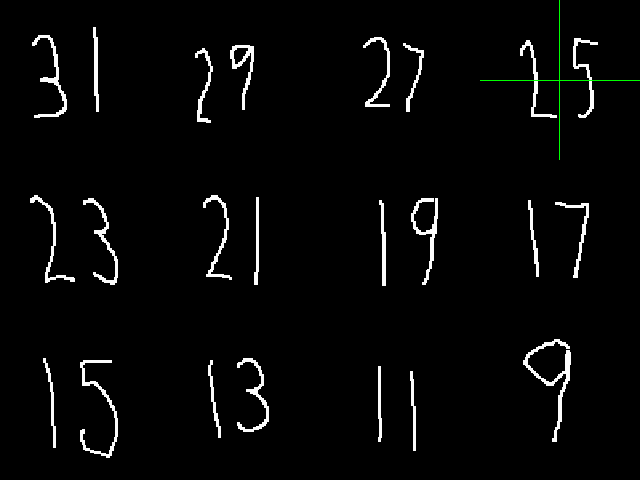 31 29 27 25
23 21 19 17
15 13 11 9